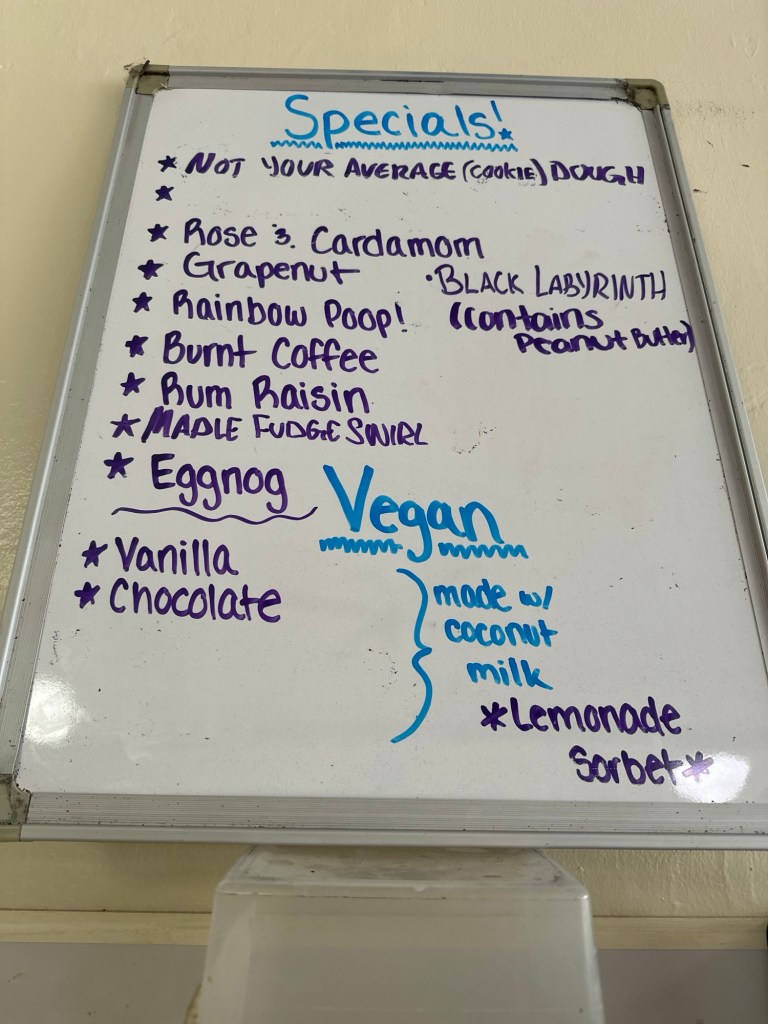 Specials!
* NOT YOUR AVERAGE (COOKIE) DOUGH
*
* Rose & Cardamom
* Grapenut
• BLACK LABYRINTH
(contains
Peanut Butter)
* Rainbow Poop!
* Burnt Coffee
* Rum Raisin
* MAPLE FUDGE SWIRL
* Eggnog
Vegan
* Vanilla
* Chocolate
made w/
coconut
milk
*Lemonade
Sorbet*